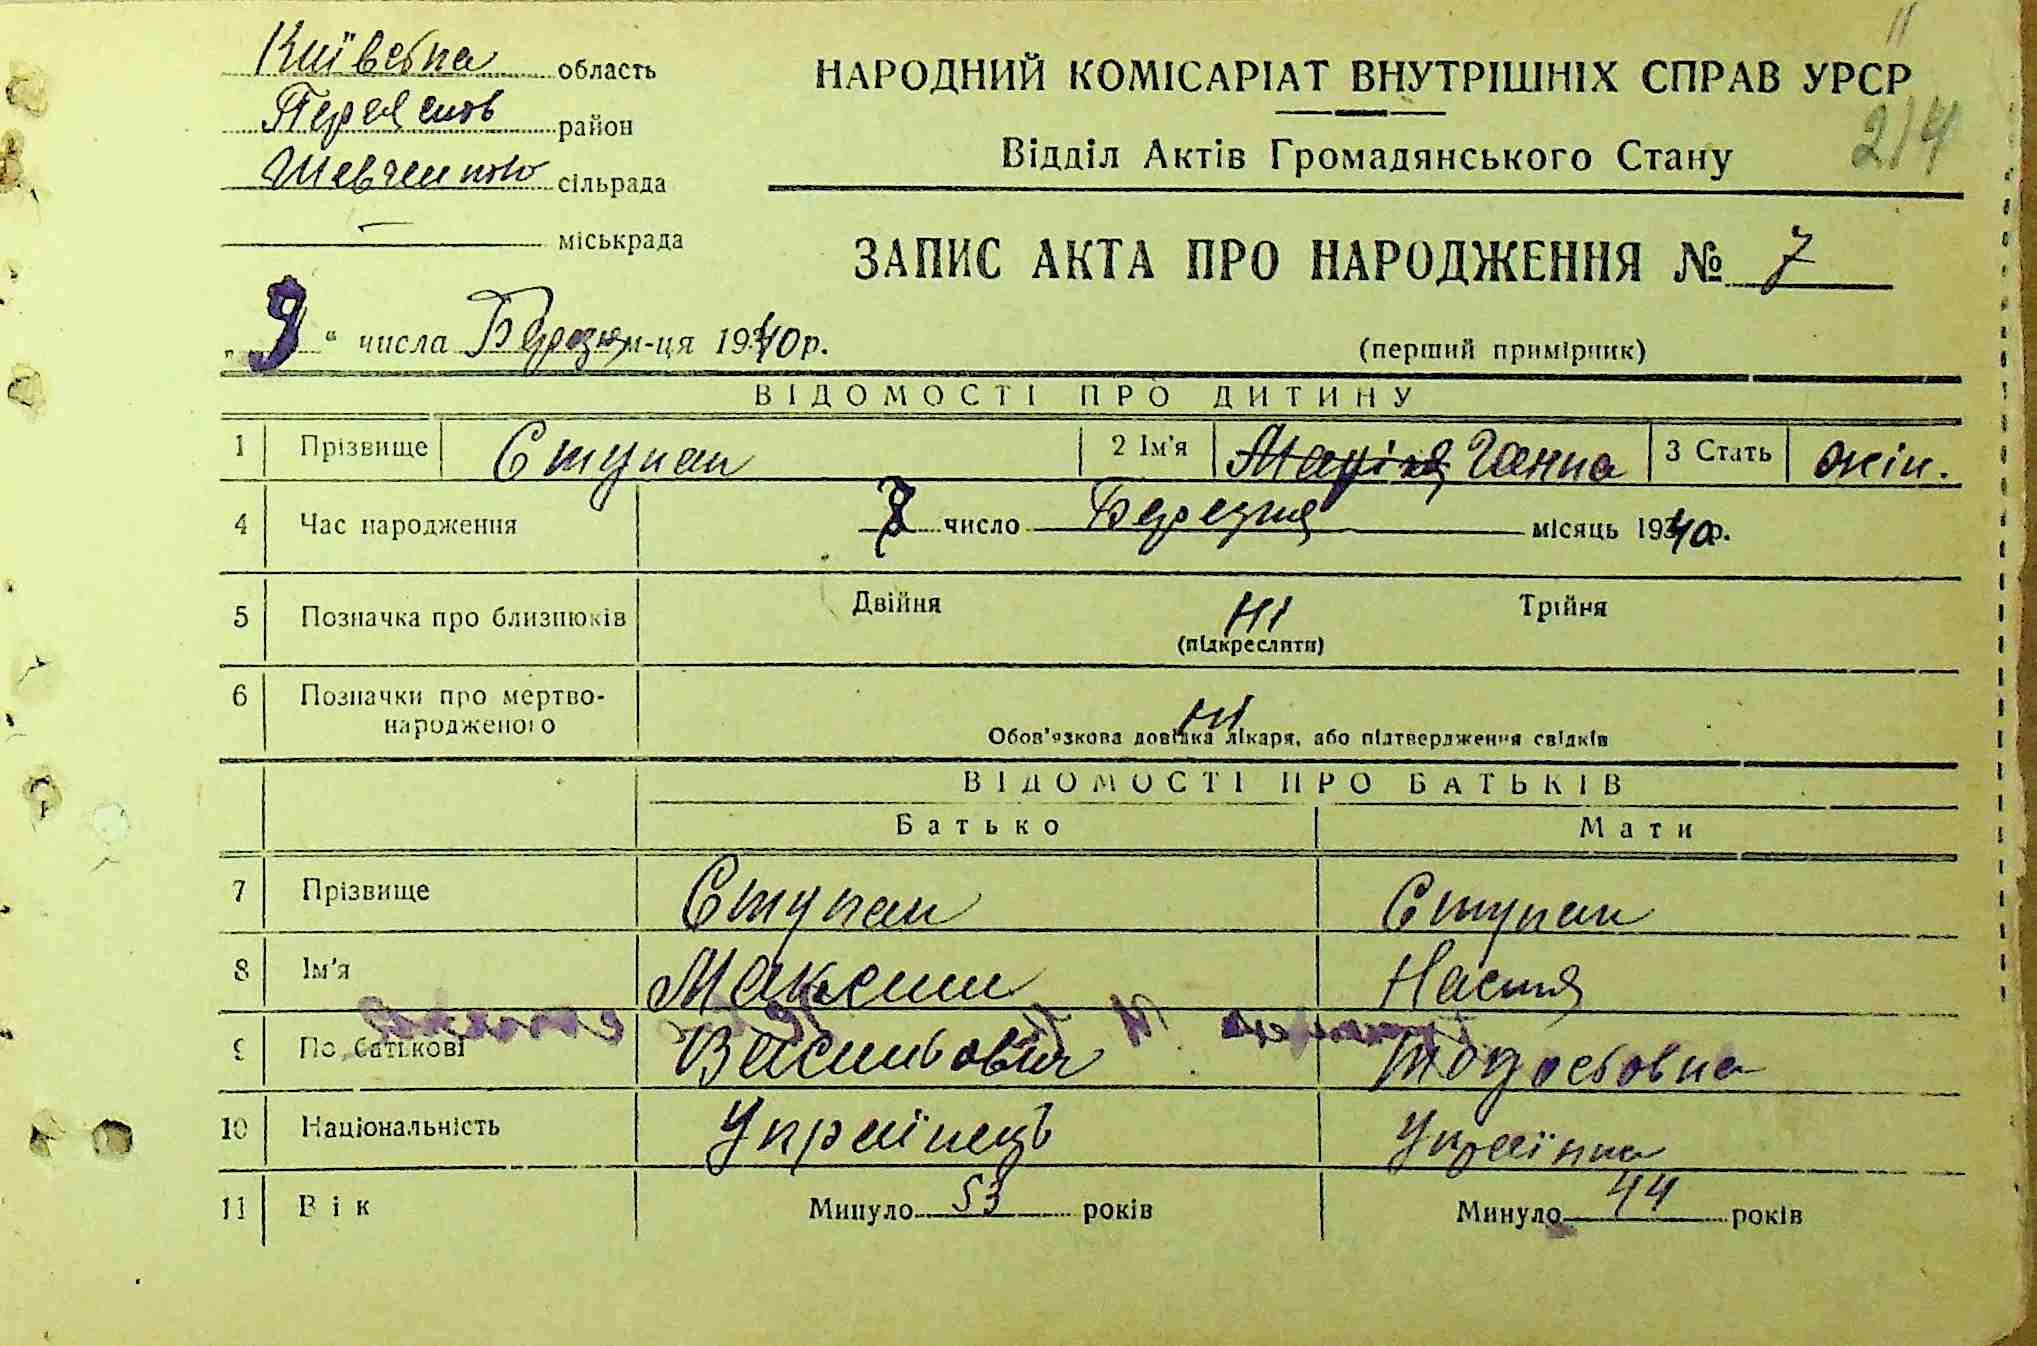 Київська область
НАРОДНИЙ КОМІСАРІАТ ВНУТРІШНІХ СПРАВ УРСР
Переяслов район
214
Відділ Актів Громадянського Стану
Шевченково сільрада
— міськрада
ЗАПИС АКТА ПРО НАРОДЖЕННЯ № 7
„ 9 “ числа Березня м-ця 1940 р.
(перший примірник)
ВІДОМОСТІ ПРО ДИТИНУ
1 Прізвище Ступак 2 Ім'я Марія Ганна 3 Стать жін.
4 Час народження число Березня місяць 1940 р.
5 Позначка про близнюків Двійня Ні Трійня
(підкреслити)
6 Позначки про мертво-
народженого Ні
Обов'язкова довідка лікаря, або підтвердження свідків
ВІДОМОСТІ ПРО БАТЬКІВ
Батько Мати
7 Прізвище Ступак Ступак
8 Ім'я Максим Настя
9 По батькові Васильович Тодосьовна
10 Національність Українець Українка
11 Вік Минуло 53 років Минуло 44 років